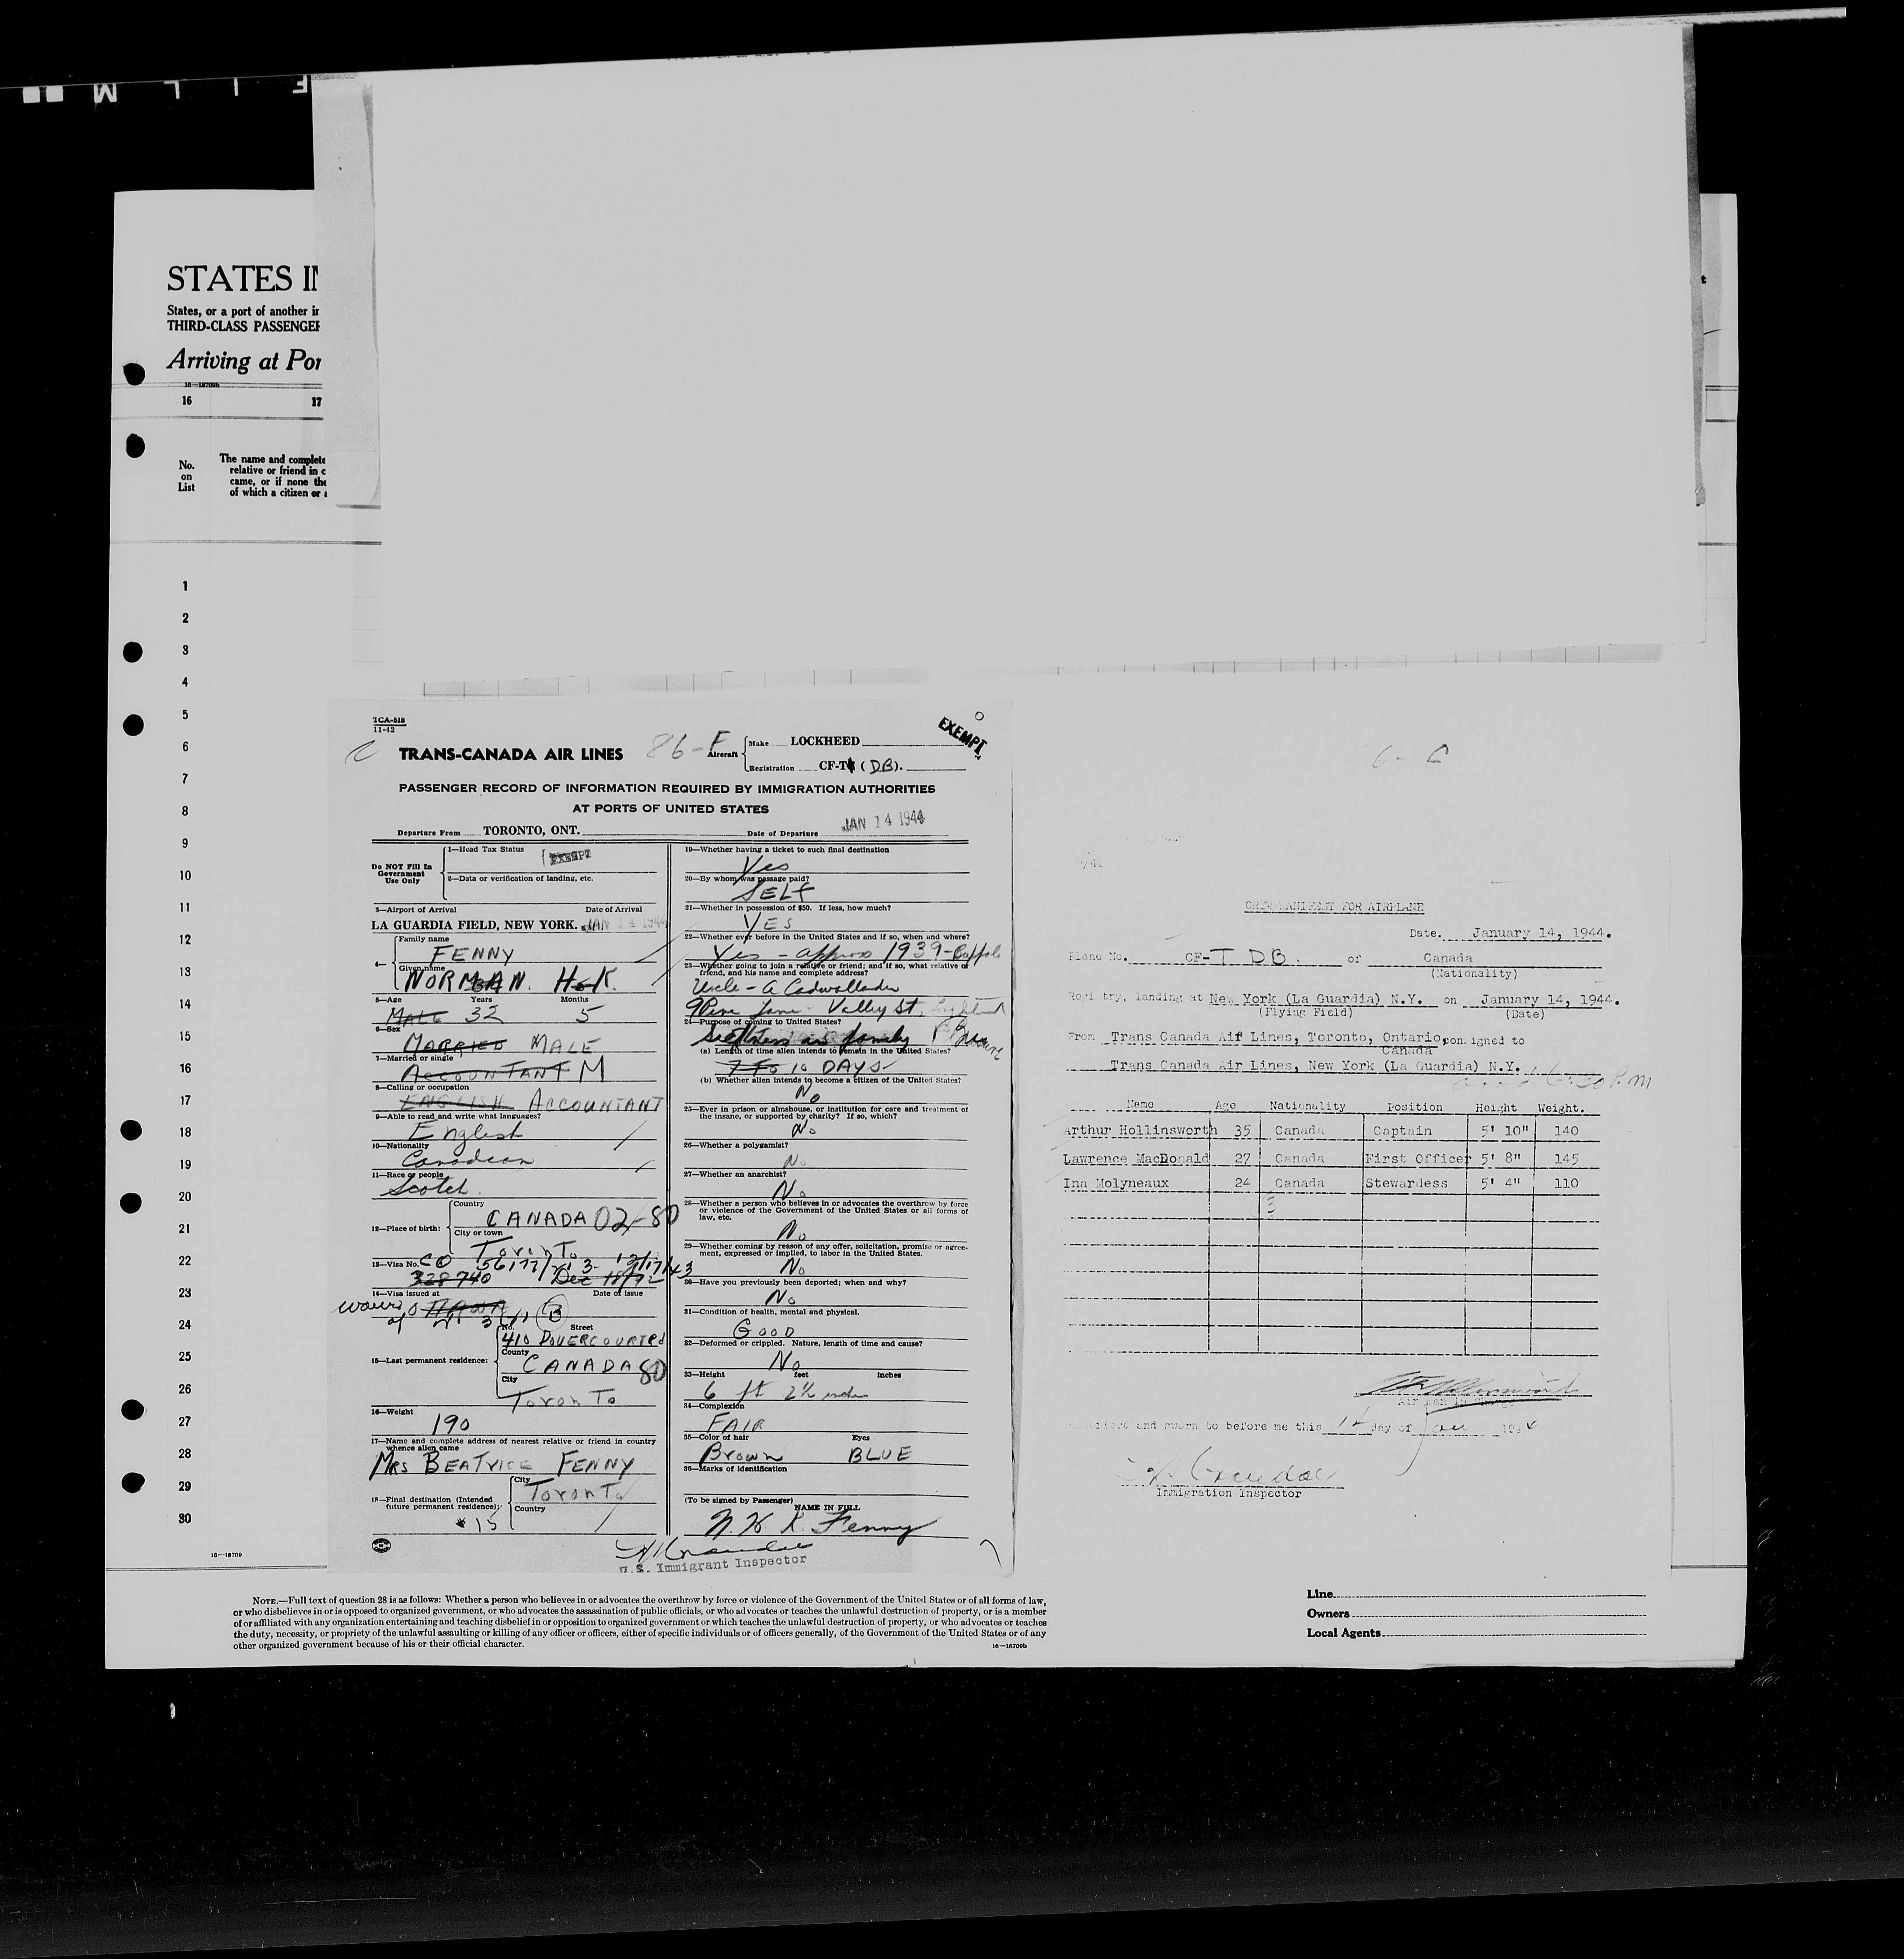 F I L M
STATES IN
States, or a port of another in
THIRD-CLASS PASSENGER
Arriving at Por
16—18709b
16 17
No. on List
The name and complete
relative or friend in c
came, or if none the
of which a citizen or
1
2
3
4
5
6
7
8
9
10
11
12
13
14
15
16
17
18
19
20
21
22
23
24
25
26
27
28
29
30
16—18709
TCA-518
11-42
TRANS-CANADA AIR LINES
86-F
Aircraft
Make LOCKHEED
Registration CF-T (DB).
EXEMPT
PASSENGER RECORD OF INFORMATION REQUIRED BY IMMIGRATION AUTHORITIES
AT PORTS OF UNITED STATES
Departure From TORONTO, ONT. Date of Departure JAN 14 1944
Do NOT Fill In Government Use Only
1—Head Tax Status EXEMPT
2—Data or verification of landing, etc.
3—Airport of Arrival Date of Arrival
LA GUARDIA FIELD, NEW YORK. JAN 14 1944
4—
Family name
FENNY
Given name
NORMAN. H.K.
5—Age Years Months
MALE 32 5
6—Sex
MARRIED MALE
7—Married or single
ACCOUNTANT M
8—Calling or occupation
ENGLISH ACCOUNTANT
9—Able to read and write what languages?
English
10—Nationality
Canadian
11—Race or people
Scotch.
12—Place of birth:
Country
CANADA 02-80
City or town
Toronto
13—Visa No.
CO 56177/ 3- 12/17/43
328740 Dec
14—Visa issued at Date of issue
OTTAWA
B
15—Last permanent residence:
No. Street
410 DOVERCOURT Rd
County
CANADA 80
City
Toronto
16—Weight
190
17—Name and complete address of nearest relative or friend in country
whence alien came
MRS BEATRICE FENNY
18—Final destination (Intended
future permanent residence):
City
Toronto
Country
15
19—Whether having a ticket to such final destination
Yes
20—By whom was passage paid?
SELF
21—Whether in possession of $50. If less, how much?
YES
22—Whether ever before in the United States and if so, when and where?
Yes - approx 1939-Buffalo
23—Whether going to join a relative or friend; and if so, what relative or
friend, and his name and complete address?
Uncle - A Cadwallader
9 Pine Lane - Valley St.
24—Purpose of coming to United States?
(a) Length of time alien intends to remain in the United States?
7 To 10 DAYS
(b) Whether alien intends to become a citizen of the United States?
No
25—Ever in prison or almshouse, or institution for care and treatment of
the insane, or supported by charity? If so, which?
No
26—Whether a polygamist?
No
27—Whether an anarchist?
No
28—Whether a person who believes in or advocates the overthrow by force
or violence of the Government of the United States or all forms of
law, etc.
No
29—Whether coming by reason of any offer, solicitation, promise or agree-
ment, expressed or implied, to labor in the United States.
No
30—Have you previously been deported; when and why?
No
31—Condition of health, mental and physical.
GOOD
32—Deformed or crippled. Nature, length of time and cause?
No
33—Height feet inches
6 ft 2½ inches
34—Complexion
FAIR
35—Color of hair Eyes
Brown BLUE
36—Marks of identification
(To be signed by Passenger)
NAME IN FULL
N. H. K. Fenny
U.S. Immigrant Inspector
CREW MANIFEST FOR AIRPLANE
Date. January 14, 1944.
Plane No. CF-T DB. of Canada
(Nationality)
Registry, landing at New York (La Guardia) N.Y. on January 14, 1944.
(Flying Field) (Date)
From Trans Canada Air Lines, Toronto, Ontario, consigned to
Canada
Trans Canada Air Lines, New York (La Guardia) N.Y.
Name Age Nationality Position Height Weight.
Arthur Hollinsworth 35 Canada Captain 5' 10" 140
Lawrence MacDonald 27 Canada First Officer 5' 8" 145
Ina Molyneaux 24 Canada Stewardess 5' 4" 110
3
and sworn to before me this 14 day of Jan 1944
Immigration Inspector
NOTE.—Full text of question 28 is as follows: Whether a person who believes in or advocates the overthrow by force or violence of the Government of the United States or of all forms of law,
or who disbelieves in or is opposed to organized government, or who advocates the assassination of public officials, or who advocates or teaches the unlawful destruction of property, or is a member
of or affiliated with any organization entertaining and teaching disbelief in or opposition to organized government or which teaches the unlawful destruction of property, or who advocates or teaches
the duty, necessity, or propriety of the unlawful assaulting or killing of any officer or officers, either of specific individuals or of officers generally, of the Government of the United States or of any
other organized government because of his or their official character.
16—18709b
Line
Owners
Local Agents